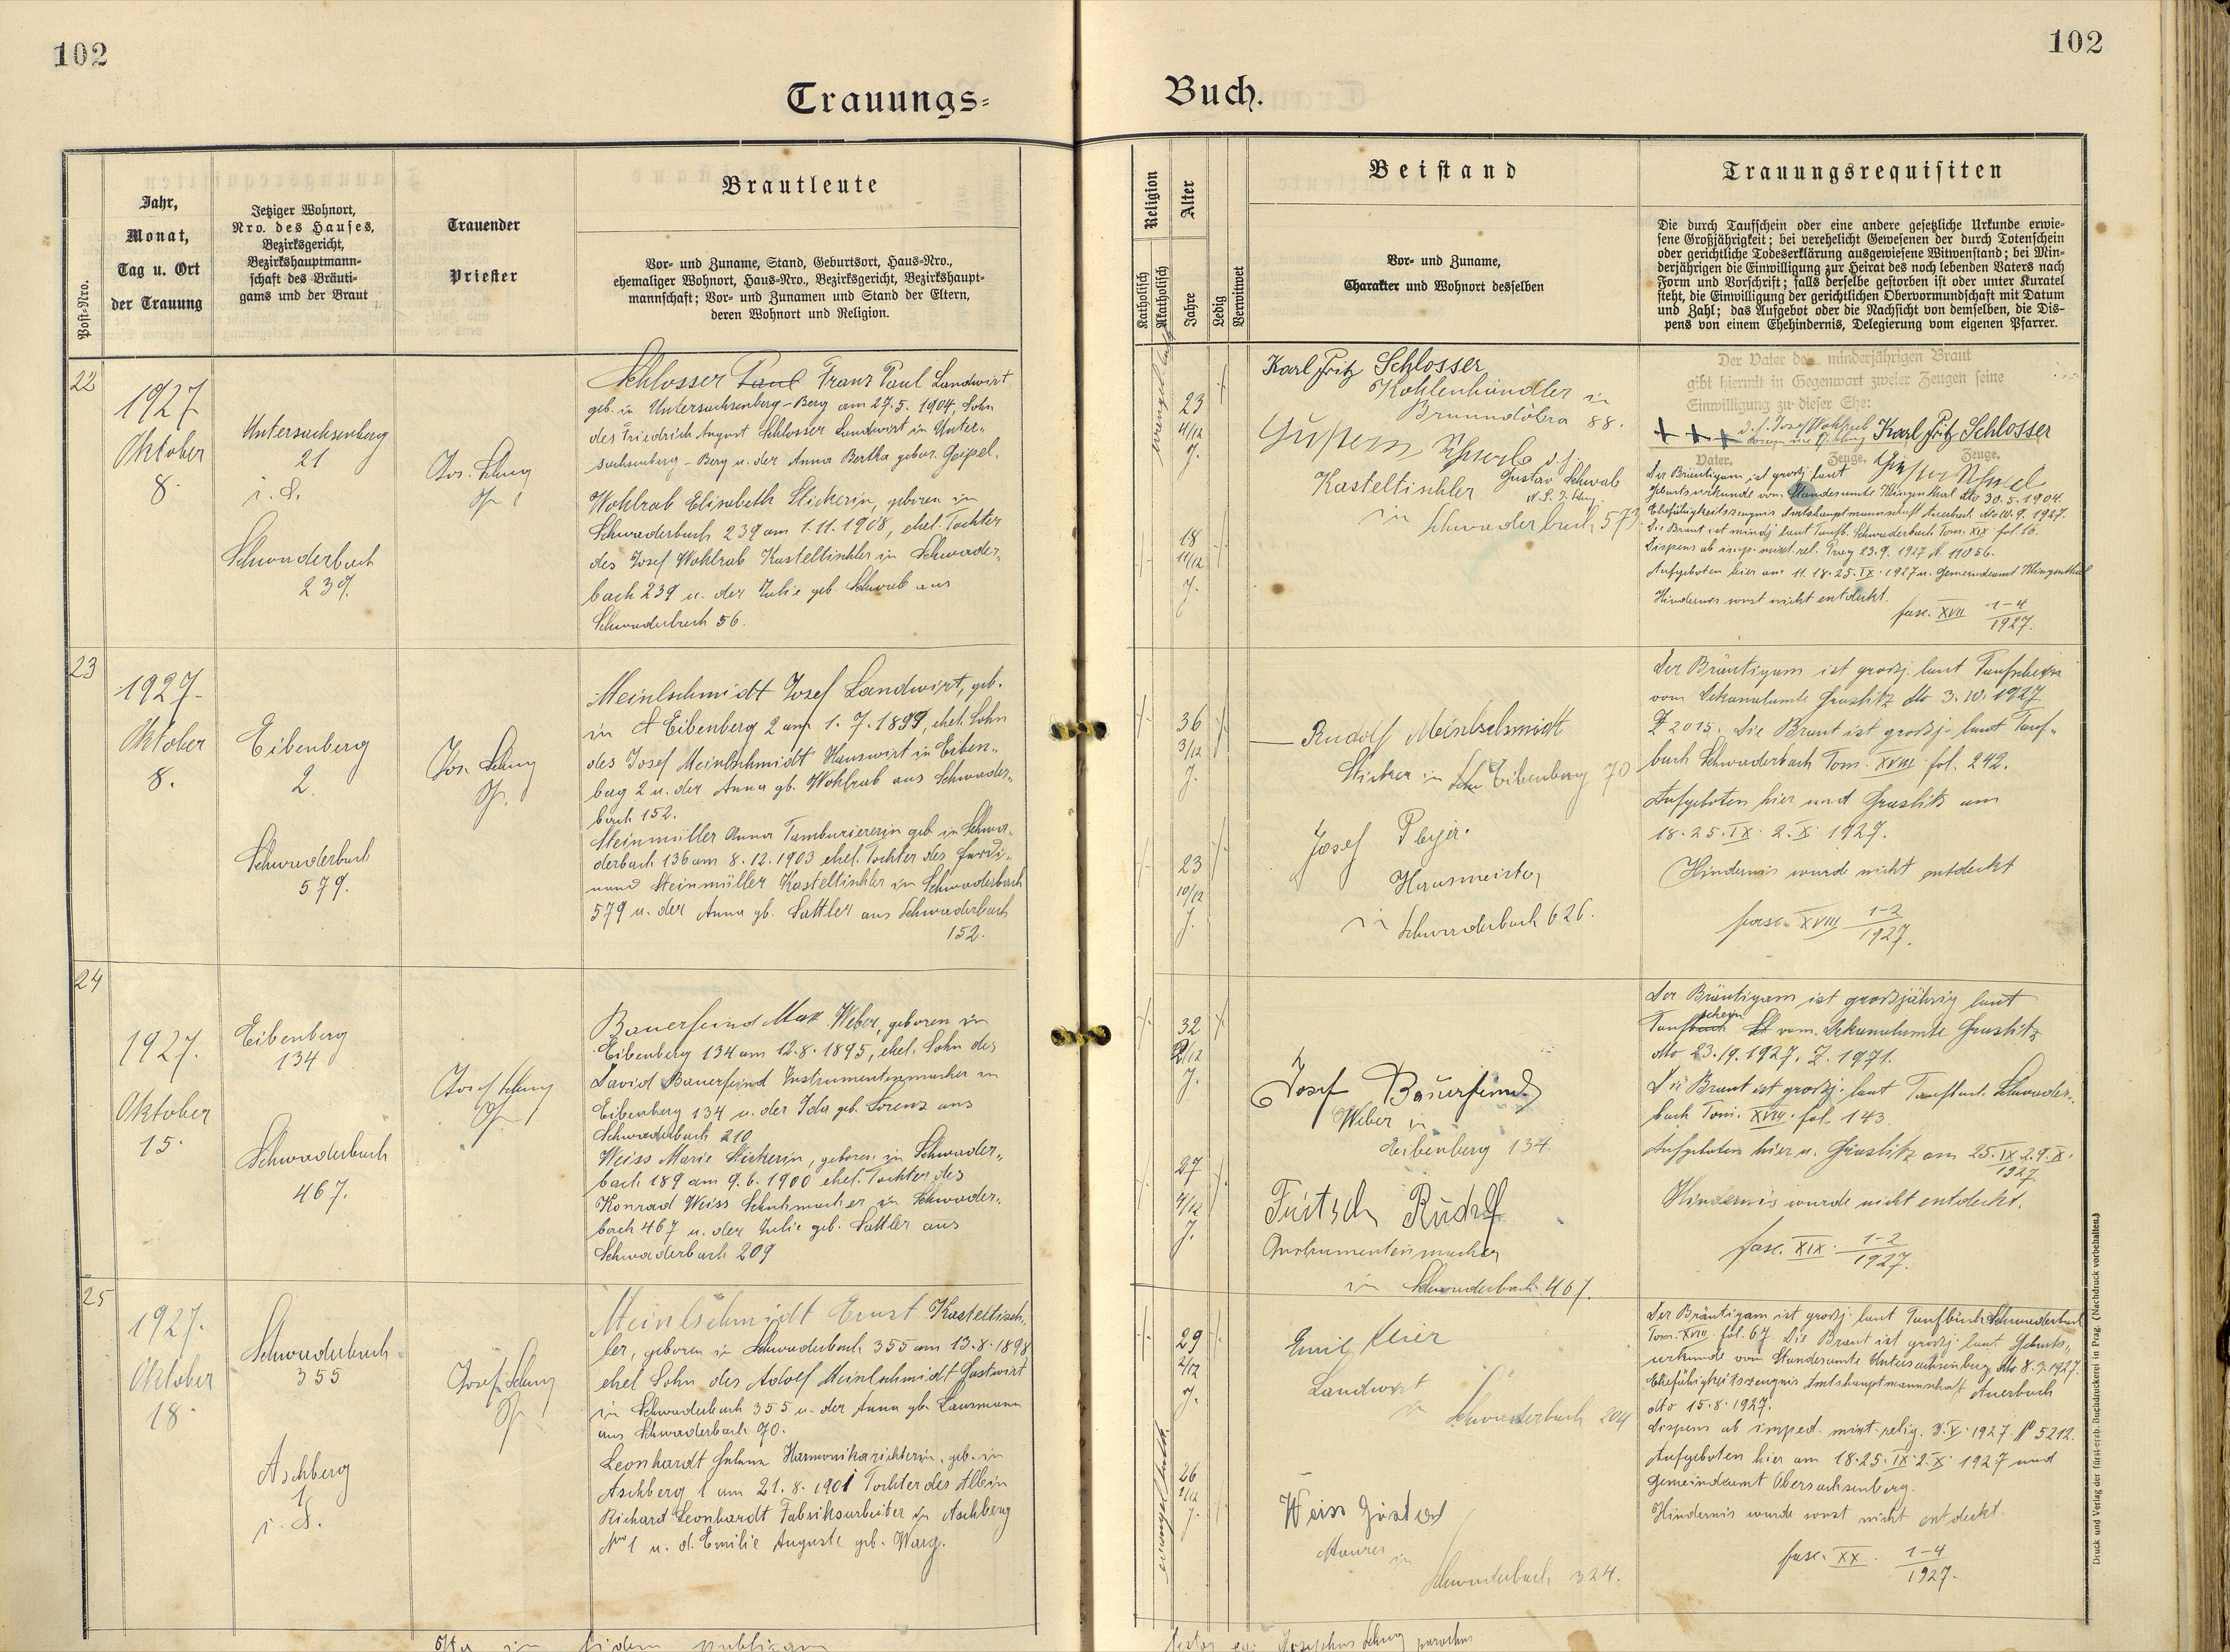 102
102
Trauungs-
Buch.
Post-Nro.
Jahr,
Monat,
Tag u. Ort
der Trauung
Jetziger Wohnort,
Nro. des Hauses,
Bezirksgericht,
Bezirkshauptmann-
schaft des Bräuti-
gams und der Braut
Trauender
Priester
Brautleute
Vor- und Zuname, Stand, Geburtsort, Haus-Nro.,
ehemaliger Wohnort, Haus-Nro., Bezirksgericht, Bezirkshaupt-
mannschaft; Vor- und Zunamen und Stand der Eltern,
deren Wohnort und Religion.
Religion
Katholisch
Akatholisch
Alter
Jahre
Ledig
Verwitwet
Beistand
Vor- und Zuname,
Charakter und Wohnort desselben
Trauungsrequisiten
Die durch Taufschein oder eine andere gesetzliche Urkunde erwie-
sene Großjährigkeit; bei verehelicht Gewesenen der durch Totenschein
oder gerichtliche Todeserklärung ausgewiesene Witwenstand; bei Min-
derjährigen die Einwilligung zur Heirat des noch lebenden Vaters nach
Form und Vorschrift; falls derselbe gestorben ist oder unter Kuratel
steht, die Einwilligung der gerichtlichen Obervormundschaft mit Datum
und Zahl; das Aufgebot oder die Nachsicht von demselben, die Dis-
pens von einem Ehehindernis, Delegierung vom eigenen Pfarrer.
22
1927
Oktober
8.
Untersachsenberg
21
i. S.
Schwaderbach
239.
Schlosser Paul Franz Paul Landwirt
geb. in Untersachsenberg-Berg am 27.5.1904, Sohn
des Friedrich August Schlosser Landwirt in Unter-
sachsenberg-Berg u. der Anna Bertha gebor. Geipel.
Wohlrab Elisabeth Stickerin, geboren in
Schwaderbach 239 am 1.11.1908, ehel. Tochter
des Josef Wohlrab Kasteltischler in Schwader-
bach 239 u. der Julie geb. Schwab aus
Schwaderbach 56.
23
4/12
J.
18
11/12
J.
Karl Fritz Schlosser
Kohlenhändler in
Brunndöbra 88.
Gustav Schwab
Kasteltischler
in Schwaderbach 573.
Der Vater der minderjährigen Braut
gibt hiermit in Gegenwart zweier Zeugen seine
Einwilligung zu dieser Ehe:
+ + + d. i. Josef Wohlrab Karl Fritz Schlosser
Vater. Zeuge. Zeuge.
Der Bräutigam ist großj. laut
Geburtsurkunde vom Standesamte Klingenthal dto 30.5.1904.
Ehefähigkeitszeugnis Amtshauptmannschaft Auerbach dto 10.9.1927.
Die Braut ist mindj. laut Taufb. Schwaderbach Tom. XIX fol. 16.
Dispens ab imp. mixt. rel. Prag 23.9.1927 N 11056.
Aufgeboten hier am 11. 18. 25. IX. 1927 u. Gemeindeamt Klingenthal
Hindernis sonst nicht entdeckt.
fasc. XVII 1-4/1927.
23
1927.
Oktober
8.
Eibenberg
2.
Schwaderbach
579.
Meinlschmidt Josef Landwirt, geb.
in Eibenberg 2 am 1.7.1891, ehel. Sohn
des Josef Meinlschmidt Hauswirt in Eiben-
berg 2 u. der Anna gb. Wohlrab aus Schwader-
bach 152.
Steinmüller Anna Tamburiererin geb. in Schwa-
derbach 136 am 8.12.1903 ehel. Tochter des Ferdi-
nand Steinmüller Kasteltischler in Schwaderbach
579 u. der Anna gb. Sattler aus Schwaderbach
152.
36
3/12
J.
23
10/12
J.
Rudolf Meinlschmidt
Sticker in Eibenberg 70
Josef Pleyer.
Hausmeister
in Schwaderbach 626.
Der Bräutigam ist großj. laut Taufschein
vom Dekanalamte Graslitz dto 3.10.1927
Z 2015. Die Braut ist großj. laut Tauf-
buch Schwaderbach Tom. XVIII fol. 242.
Aufgeboten hier und Graslitz am
18. 25. IX. 2. X. 1927.
Hindernis wurde nicht entdeckt
fasc. XVIII 1-2/1927.
24
1927.
Oktober
15.
Eibenberg
134
Schwaderbach
467.
Bauerfeind Max Weber, geboren in
Eibenberg 134 am 12.8.1895, ehel. Sohn des
David Bauerfeind Instrumentenmacher in
Eibenberg 134 u. der Ida geb. Lorenz aus
Schwaderbach 210
Weiss Marie Stickerin, geboren in Schwader-
bach 189 am 9.6.1900 ehel. Tochter des
Konrad Weiss Schuhmacher in Schwader-
bach 467 u. der Julie geb. Sattler aus
Schwaderbach 209
32
2/12
J.
27
4/12
J.
Josef Bauerfeind
Weber in
Eibenberg 134.
Fritsch Rudolf
Instrumentenmacher
in Schwaderbach 467.
Der Bräutigam ist großjährig laut
Taufschein vom Dekanalamte Graslitz
dto 23.9.1927. Z. 1971.
Die Braut ist großj. laut Taufbuch Schwader-
bach Tom. XVIII fol. 143.
Aufgeboten hier u. Graslitz am 25. IX. 2. 9. X.
1927
Hindernis wurde nicht entdeckt.
fasc. XIX. 1-2/1927.
25
1927.
Oktober
18.
Schwaderbach
355
Aschberg
1
i. S.
Meinlschmidt Ernst Kasteltisch-
ler, geboren in Schwaderbach 355 am 13.8.1898
ehel. Sohn des Adolf Meinlschmidt Gastwirt
in Schwaderbach 355 u. der Anna gb. Lausmann
aus Schwaderbach 70.
Leonhardt Helene Harmonikarichterin, geb. in
Aschberg 1 am 21.8.1901 Tochter des Albin
Richard Leonhardt Fabriksarbeiter in Aschberg
No 1 u. d. Emilie Auguste geb. Warg.
29
2/12
J.
26
J.
Emil Meier
Landwirt
in Schwaderbach 204
Weiss Gustav
Maurer in
Schwaderbach 324.
Der Bräutigam ist großj. laut Taufbuch Schwaderbach
Tom. XVIII fol. 67. Die Braut ist großj. laut Geburts-
urkunde vom Standesamte Untersachsenberg dto 8.3.1927.
Ehefähigkeitszeugnis Amtshauptmannschaft Auerbach
dto 15.8.1927.
Dispens ab imped. mixt. relig. 3. X. 1927 N 5212.
Aufgeboten hier am 18. 25. IX. 2. X. 1927 und
Gemeindeamt Obersachsenberg.
Hindernis wurde sonst nicht entdeckt.
fasc. XX. 1-4/1927.
Druck und Verlag der fürst-erzb. Buchdruckerei in Prag. (Nachdruck vorbehalten.)